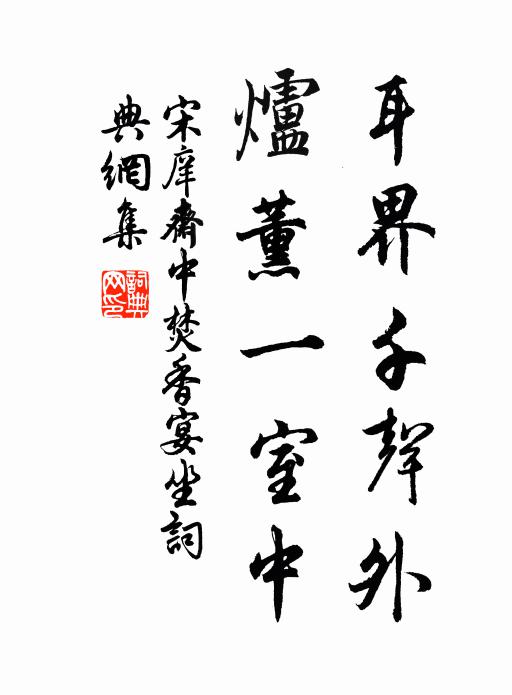 耳界千聲外
爐薰一室中
宋庠齋中焚香宴坐詞
典網集
詞典网印